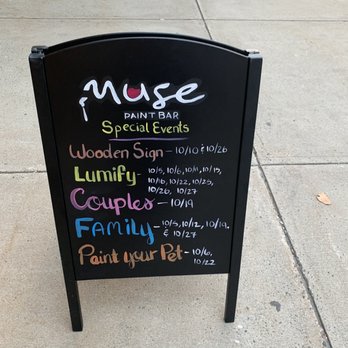 Muse
PAINT BAR
Special Events
Wooden Sign - 10/10 & 10/26
Lumify - 10/5, 10/6, 10/11, 10/15,
10/16, 10/22, 10/25,
10/26, 10/27
Couples - 10/19
Family - 10/5, 10/12, 10/19,
& 10/27
Paint your Pet - 10/6,
10/22